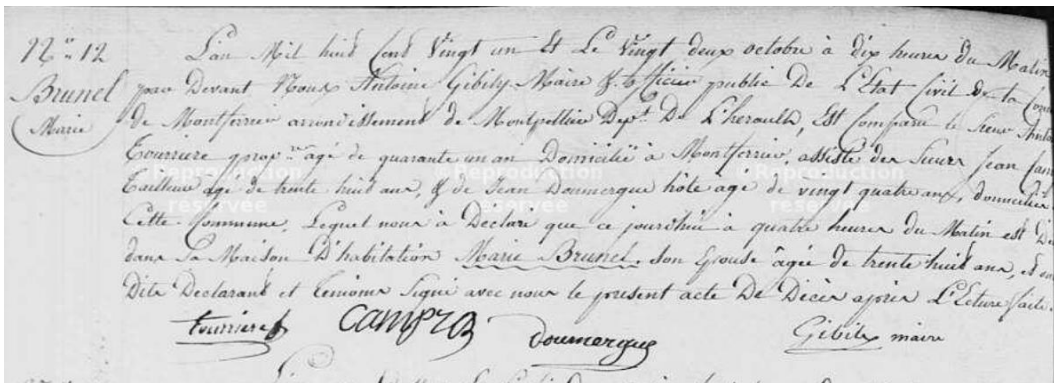 N.º 12
Brunel
Marie
L'an Mil huit Cent Vingt un Et Le Vingt deux octobre à dix heures du Matin
par Devant Nous Antoine Gibily Maire & officier public De L'Etat Civil de la
de Montferrier arrondissement de Montpellier Dep.t De L'herault, Est Comparu le Sieur
Tourriere prop.re agé de quarante un an Domicilié à Montferrier, assisté des Sieurs Jean
Tailleur agé de trente huit ans, & de Jean Doumergue hôte agé de vingt quatre ans, domiciliés
Cette Commune, Lequel nous à Declaré que ce jourd'hui à quatre heures du Matin est
dans sa Maison D'habitation Marie Brunel, son Epouse âgée de trente huit ans, et
Dits Declarant et Temoins Signé avec nous le present acte De Décès après L'Ecture faite.
tourriere campra Doumergue Gibily maire
©Reproduction réservée ©Reproduction réservée ©Reproduction réservée